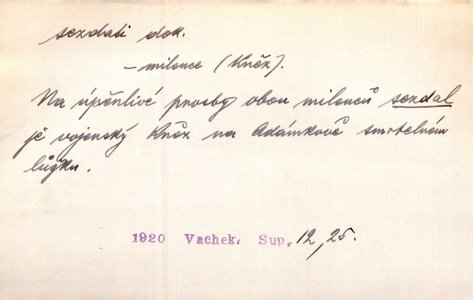 sezdati dok.
– milence (Kněz).
Na úpěnlivé prosby obou milenců sezdal
je vojenský Kněz na Adámkově smrtelném
lůžku.
1920 Vachek. Sup. 12, 25.